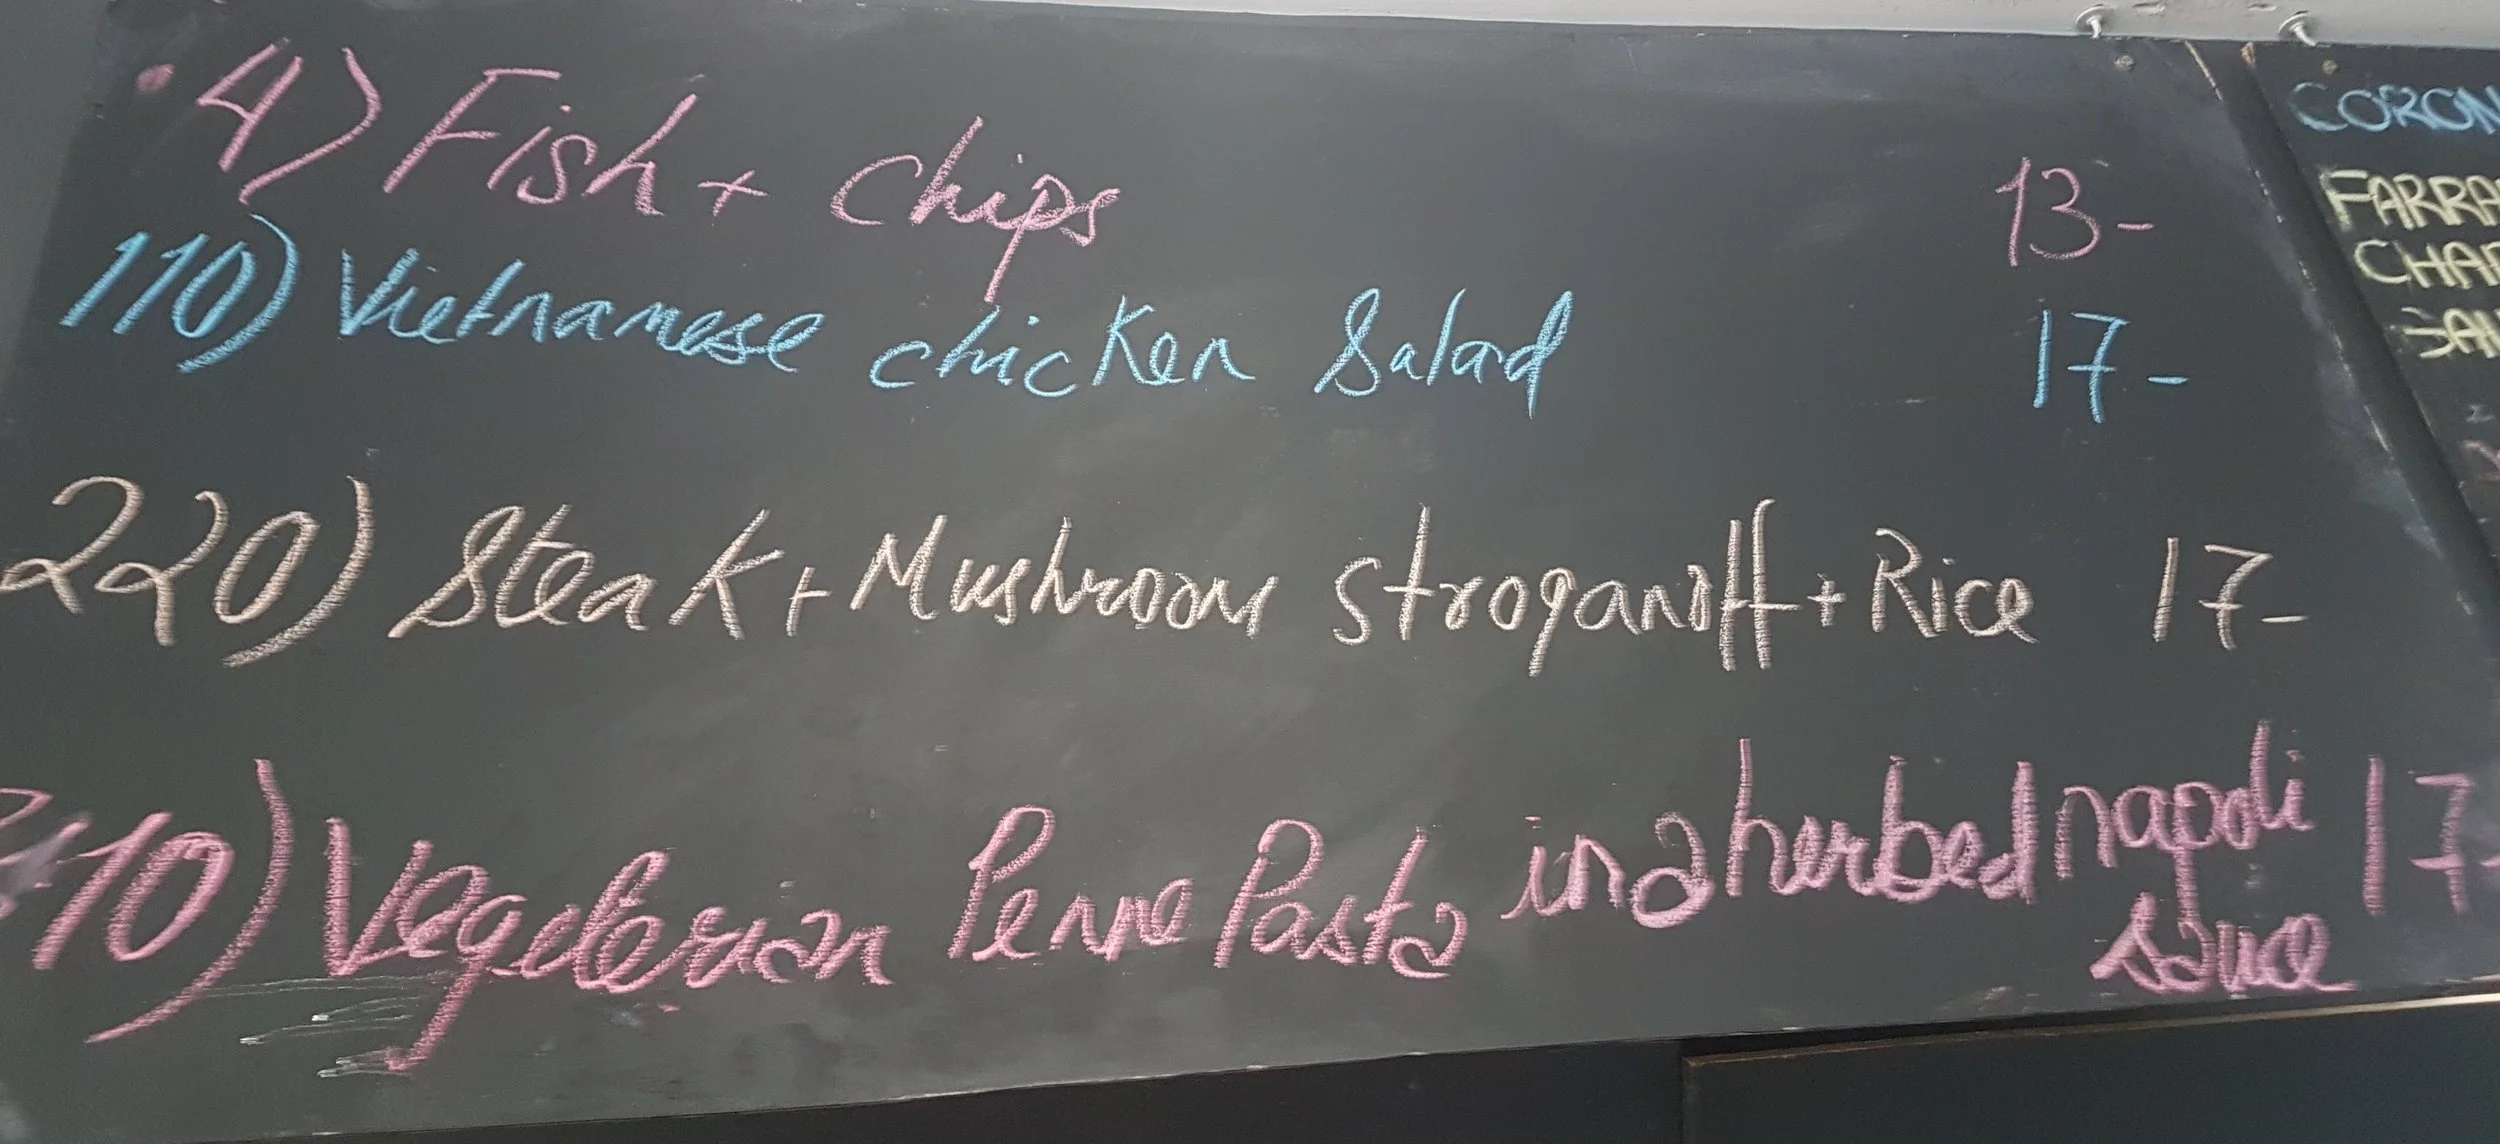 4) Fish + Chips 13-
110) Vietnamese chicken Salad 17-
220) Steak + Mushroom Stroganoff + Rice 17-
10) Vegeterian Penne Pasta in a herbed napoli 17-
sauce
CORON
FARRA
CHAR
SAU